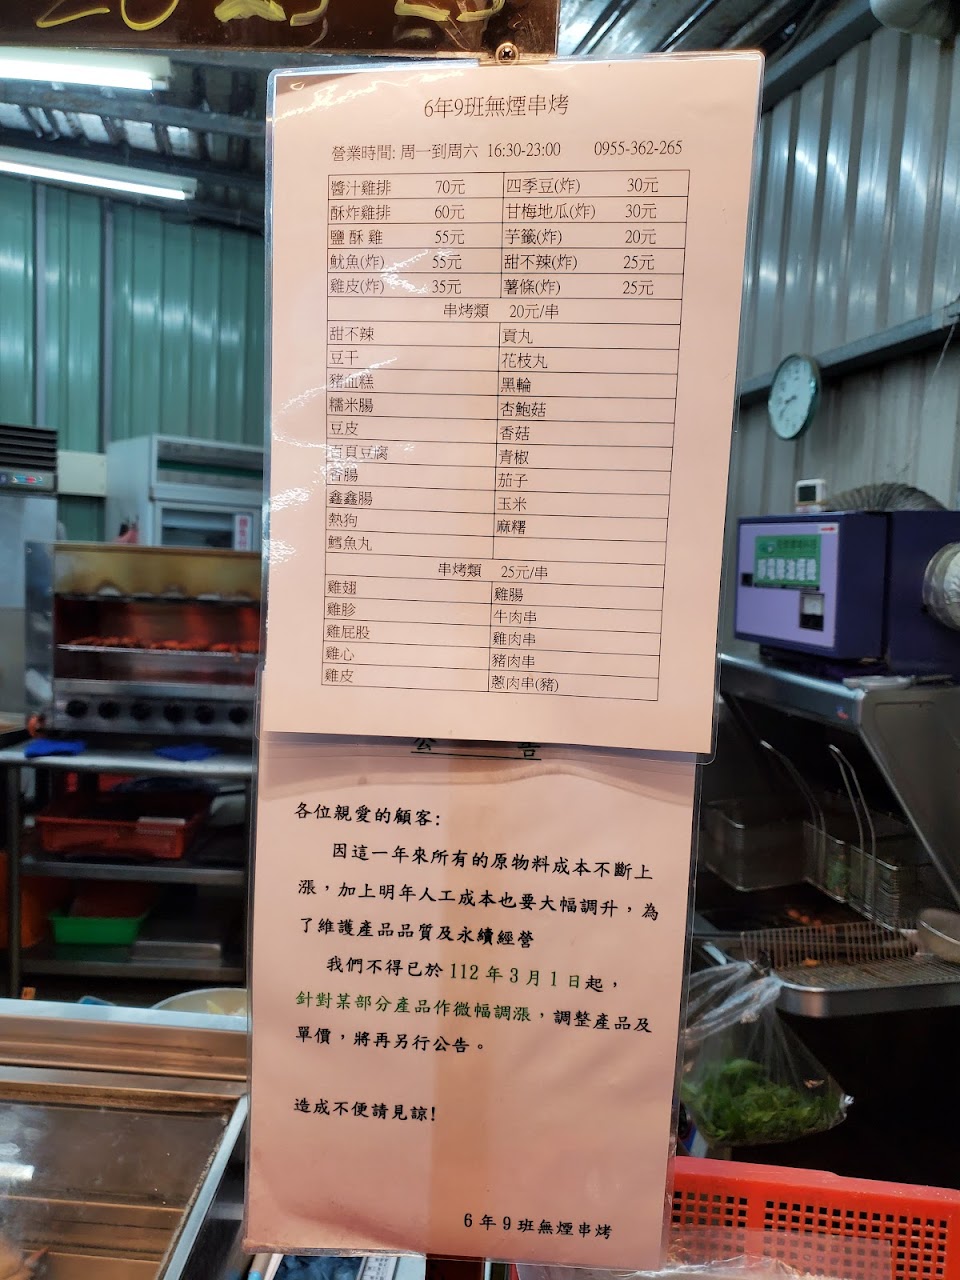 6年9班無煙串烤
營業時間: 周一到周六 16:30-23:00 0955-362-265
醬汁雞排 70元 四季豆(炸) 30元
酥炸雞排 60元 甘梅地瓜(炸) 30元
鹽酥雞 55元 芋籤(炸) 20元
魷魚(炸) 55元 甜不辣(炸) 25元
雞皮(炸) 35元 薯條(炸) 25元
串烤類 20元/串
甜不辣 貢丸
豆干 花枝丸
豬血糕 黑輪
糯米腸 杏鮑菇
豆皮 香菇
百頁豆腐 青椒
香腸 茄子
鑫鑫腸 玉米
熱狗 麻糬
鱈魚丸
串烤類 25元/串
雞翅 雞腸
雞胗 牛肉串
雞屁股 雞肉串
雞心 豬肉串
雞皮 蔥肉串(豬)
公告
各位親愛的顧客:
因這一年來所有的原物料成本不斷上
漲，加上明年人工成本也要大幅調升，為
了維護產品品質及永續經營
我們不得已於112年3月1日起，
針對某部分產品作微幅調漲，調整產品及
單價，將再另行公告。
造成不便請見諒!
6年9班無煙串烤